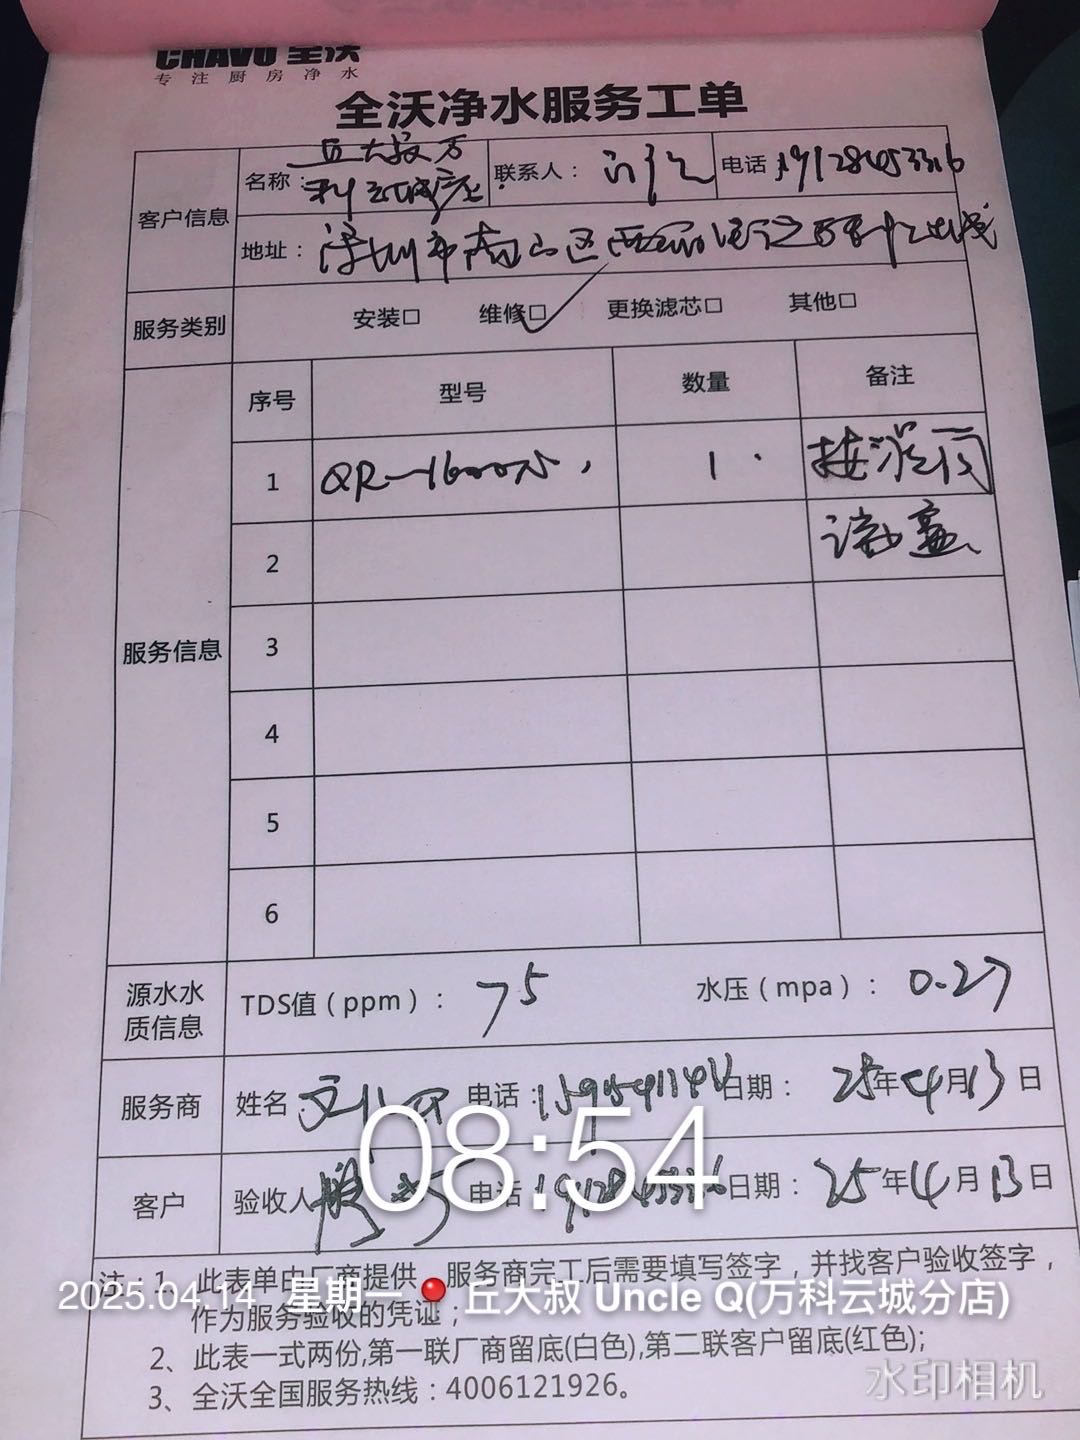 CHAVO 全沃
专注厨房净水
全沃净水服务工单
客户信息 名称： 丘大叔万科云城店 联系人： 电话 19128453316
地址： 深圳市南山区西丽
服务类别 安装□ 维修□ 更换滤芯□ 其他□
服务信息 序号 型号 数量 备注
1 QR-1600 1
2
3
4
5
6
源水水质信息 TDS值（ppm）： 75 水压（mpa）： 0.27
服务商 姓名： 电话： 日期： 25年4月13日
客户 验收人 电话 日期： 25年4月13日
08:54
注：1、此表单由厂商提供，服务商完工后需要填写签字，并找客户验收签字，
作为服务验收的凭证；
2025.04.14 星期一 丘大叔 Uncle Q(万科云城分店)
2、此表一式两份,第一联厂商留底(白色),第二联客户留底(红色);
3、全沃全国服务热线：4006121926。
水印相机